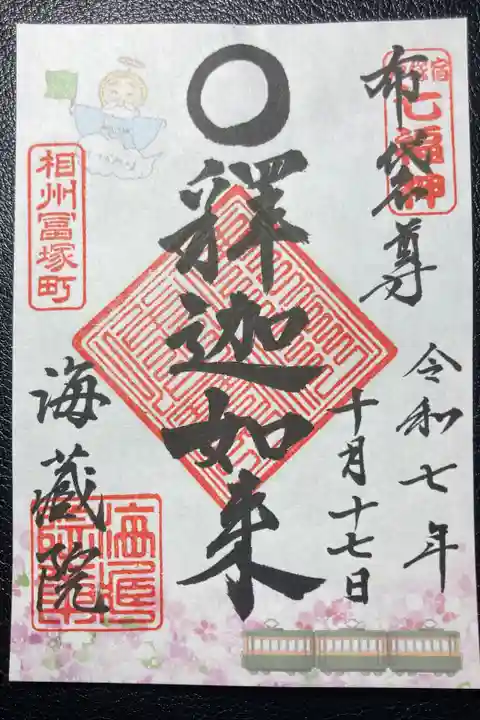 戸塚宿
七福神
布袋尊
令和七年
十月十七日
釋迦如来
相州冨塚町
海蔵院